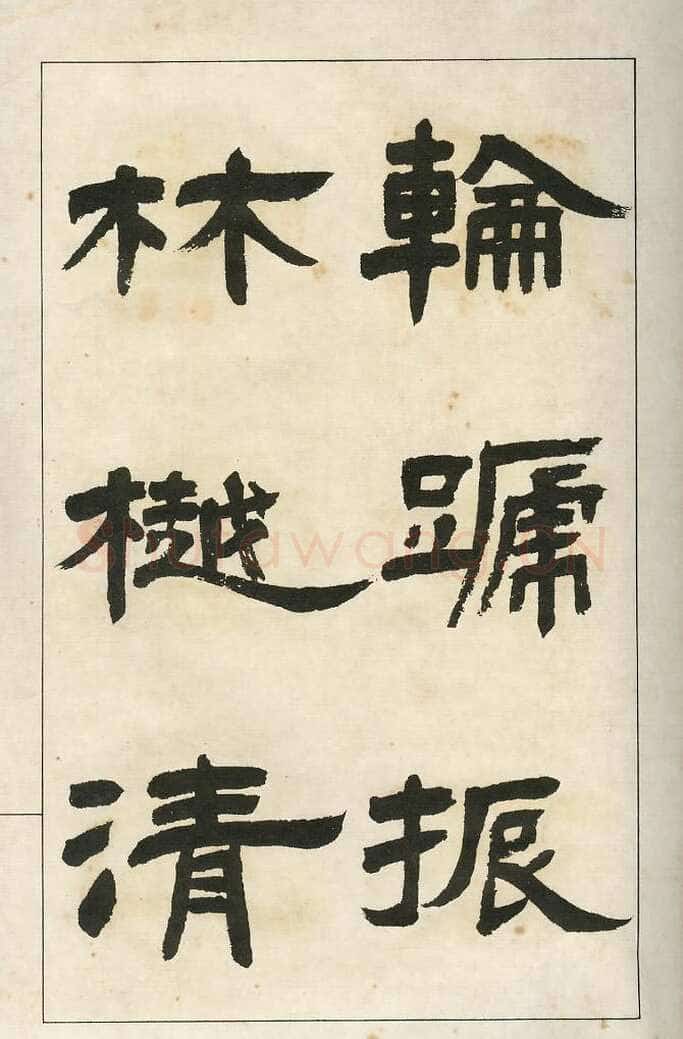 輪蹏振
林樾清
shufawang.CN